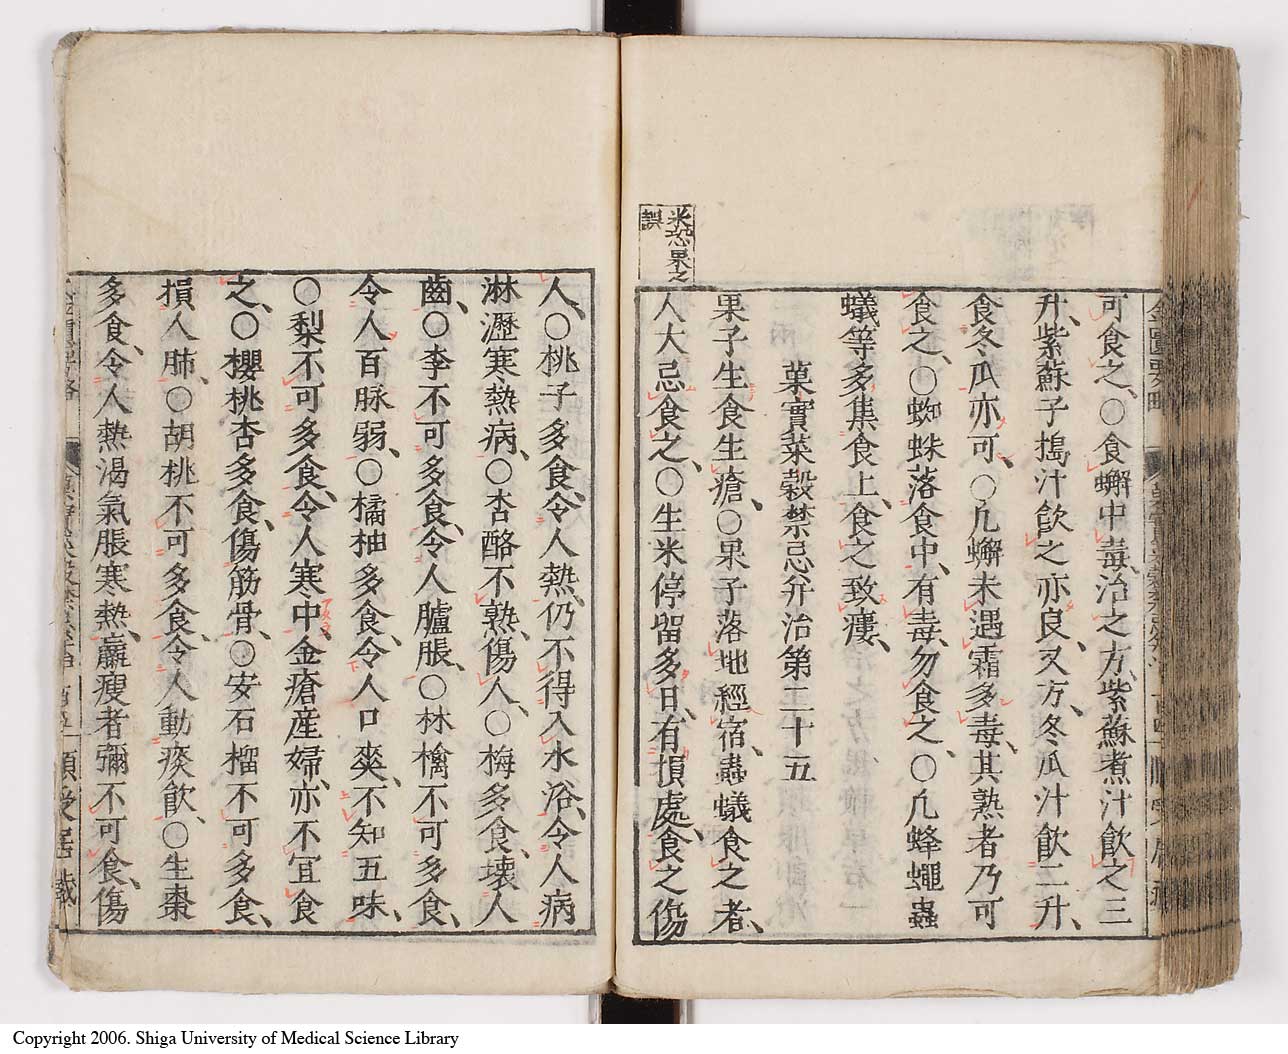 金匱要略
可食之、〇食蠏中毒、治之方、紫蘇煮汁飲之三
升、紫蘇子搗汁飲之亦良、又方、冬瓜汁飲二升、
食冬瓜亦可、〇凡蠏未遇霜多毒、其熟者乃可
食之、〇蜘蛛落食中、有毒、勿食之、〇凡蜂蠅蟲
蟻等多集食上、食之致瘻、
菓實菜穀禁忌并治第二十五
果子生食生瘡、〇果子落地經宿、蟲蟻食之者、
米恐果之
誤
人大忌食之、〇生米停留多日、有損處、食之傷
人、〇桃子多食、令人熱、仍不得入水浴、令人病
淋瀝寒熱病、〇杏酪不熟、傷人、〇梅多食、壞人
齒、〇李不可多食、令人臚脹、〇林檎不可多食、
令人百脉弱、〇橘柚多食、令人口爽、不知五味、
〇梨不可多食、令人寒中、金瘡産婦、亦不宜食
之、〇櫻桃杏多食、傷筋骨、〇安石榴不可多食、
損人肺、〇胡桃不可多食、令人動痰飲、〇生棗
多食、令人熱渴氣脹寒熱、羸瘦者彌不可食、傷
Copyright 2006. Shiga University of Medical Science Library